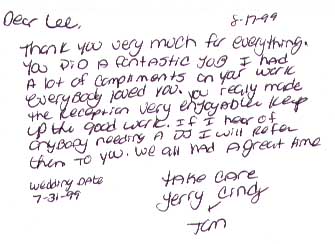 Dear Lee, 8-17-99
Thank you very much for everything.
You DiD A fantastic JOB I had
A lot of Compliments on your work
everyBody loved you. you really made
the Reception very enjoyable. Keep
up the good work. If I hear of
anyBody needing A DJ I will Refer
them To you. We all had A great time
wedding Date
7-31-99
take care
Jerry Cindy